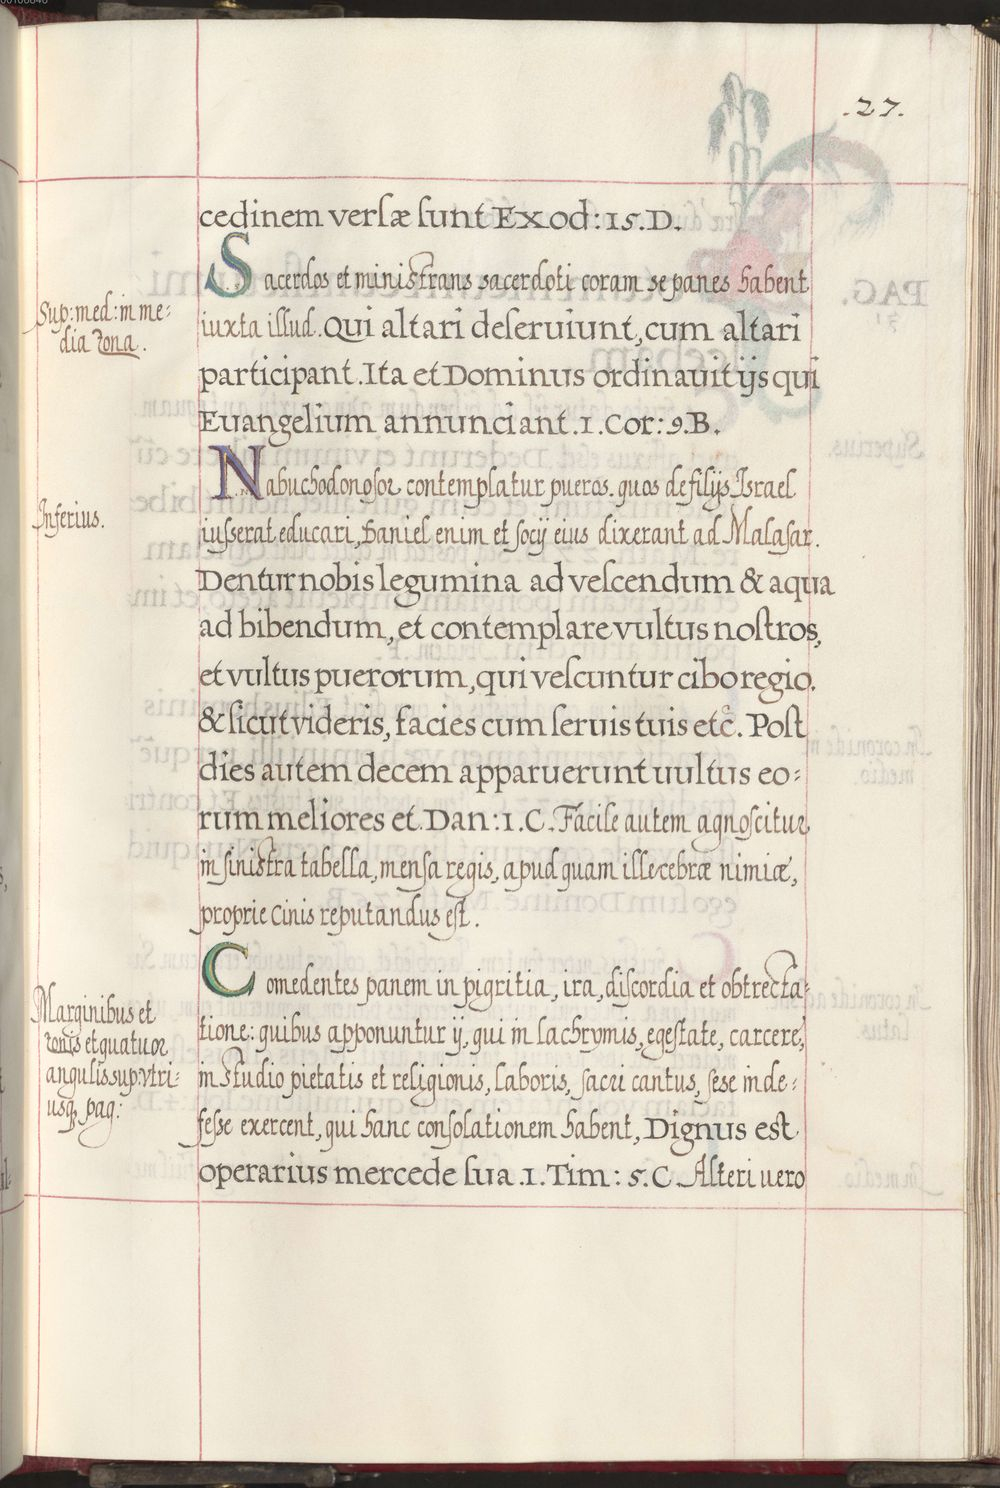 .27.
cedinem versæ sunt Exod: 15. D.
Sacerdos et ministrans sacerdoti coram se panes habent
Sup: med: in me=
dia zona.
iuxta illud. Qui altari deseruiunt, cum altari
participant. Ita et Dominus ordinauit ijs qui
Euangelium annunciant. 1. Cor: 9. B.
Nabuchodonosor contemplatur pueros. quos de filijs Israel
Inferius.
iusserat educari, Daniel enim et socij eius dixerant ad Malasar.
Dentur nobis legumina ad vescendum & aqua
ad bibendum, et contemplare vultus nostros,
et vultus puerorum, qui vescuntur cibo regio.
& sicut videris, facies cum seruis tuis etc̃. Post
dies autem decem apparuerunt uultus eo=
rum meliores et. Dan: 1. C. Facile autem agnoscitur
in sinistra tabella, mensa regis, apud quam illecebræ nimiæ,
proprie Cinis reputandus est.
Comedentes panem in pigritia, ira, discordia et obtrecta=
Marginibus et
zonis et quatuor
angulis sup: vtri=
usq, pag:
tione: quibus apponuntur ij, qui in lachrymis, egestate, carcere,
in studio pietatis et religionis, laboris, sacri cantus, sese inde=
fesse exercent, qui hanc consolationem habent, Dignus est
operarius mercede sua. 1. Tim: 5. C. Alteri uero